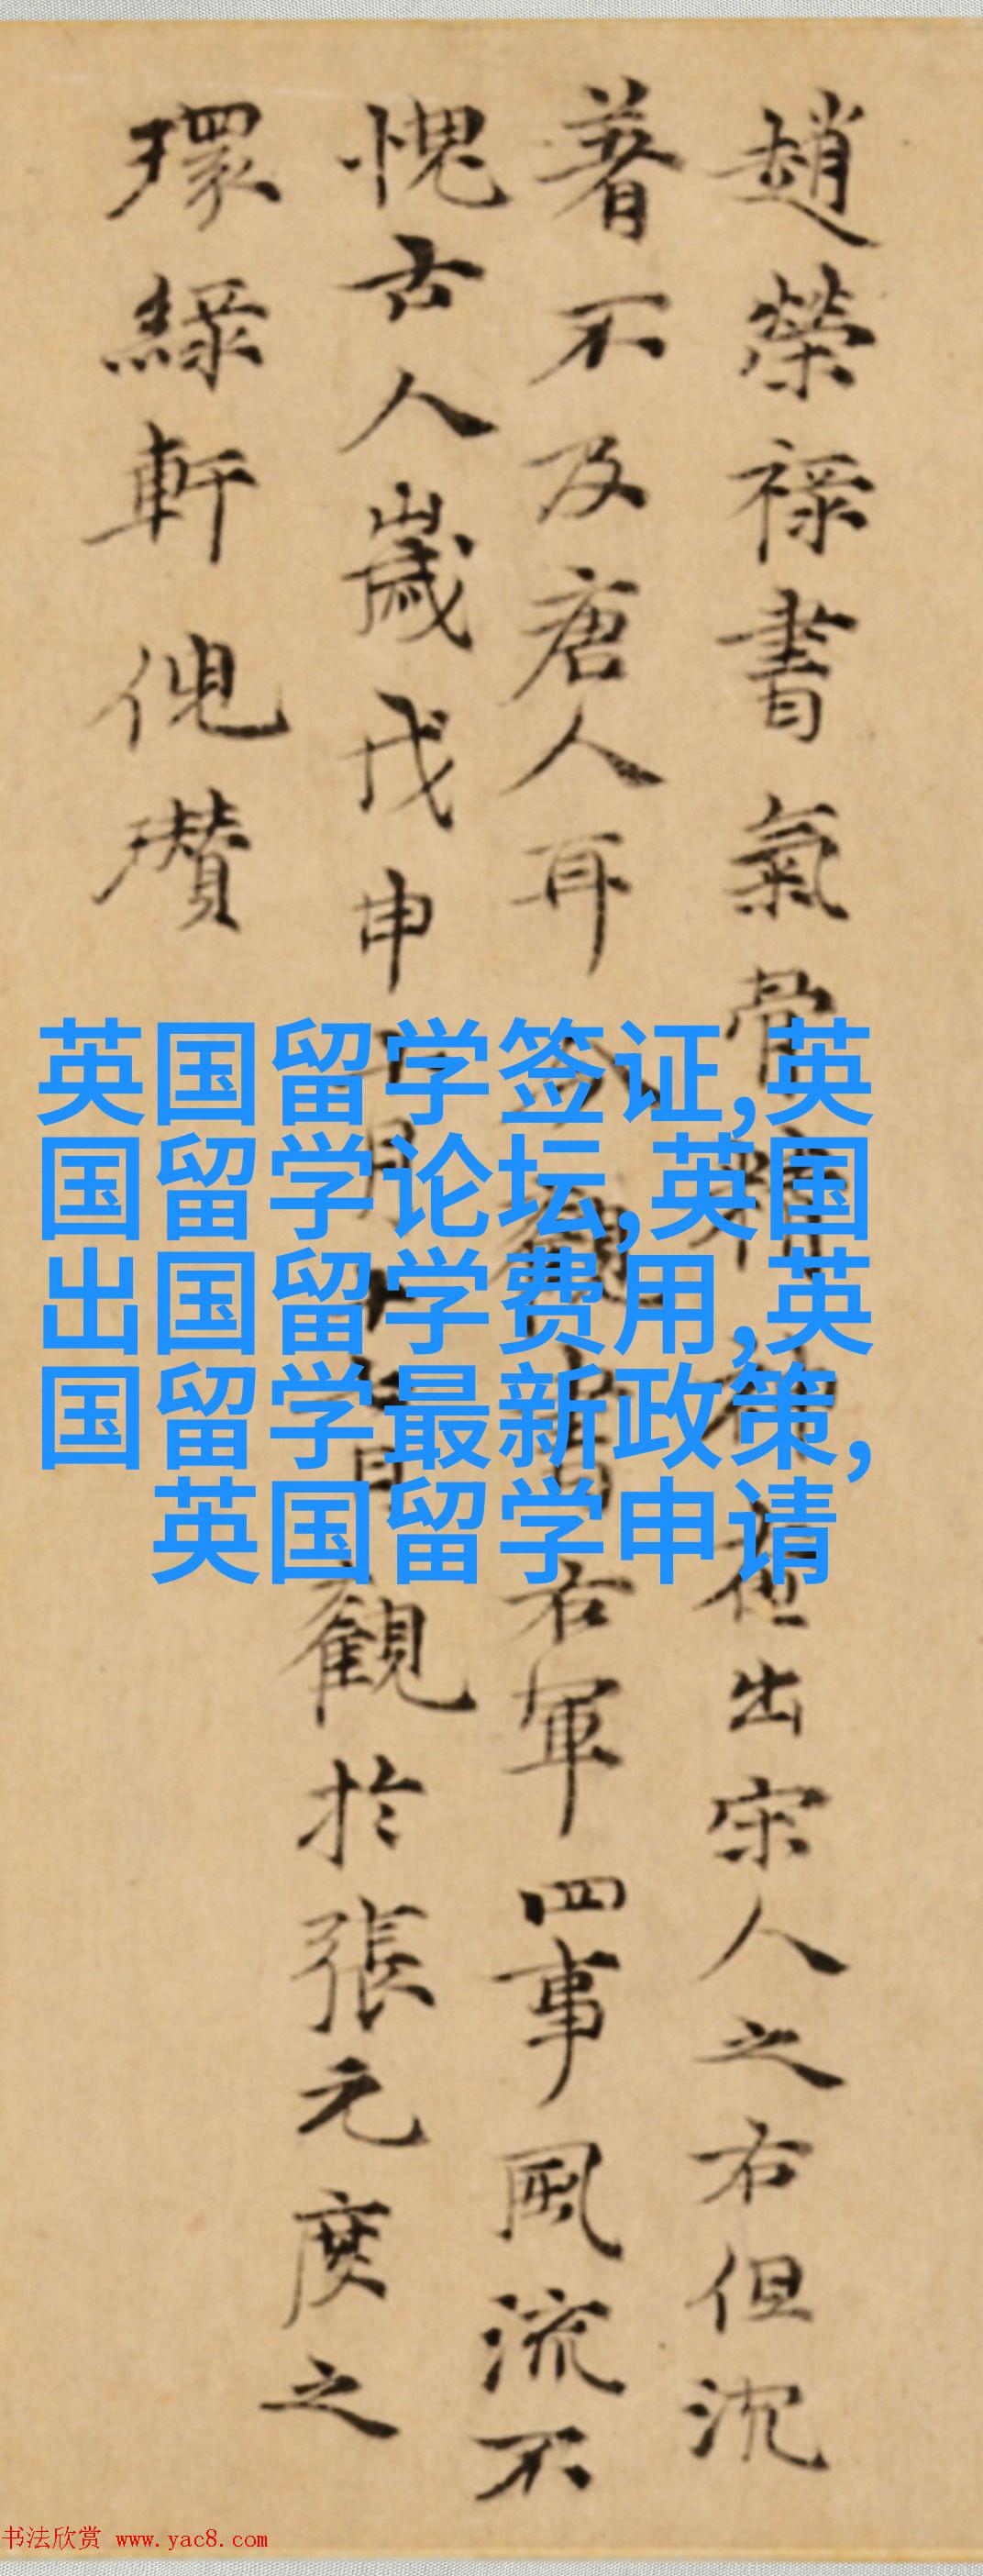 趙榮祿書氣骨
在出宋人之右但沉
著不及唐人耳
右軍四事風流不
愧古人歲戊申
月
觀於張元度之
環綠軒倪瓚
英国留学签证,英
国留学论坛,英国
出国留学费用,英
国留学最新政策,
英国留学申请
书法欣赏 www.yac8.com